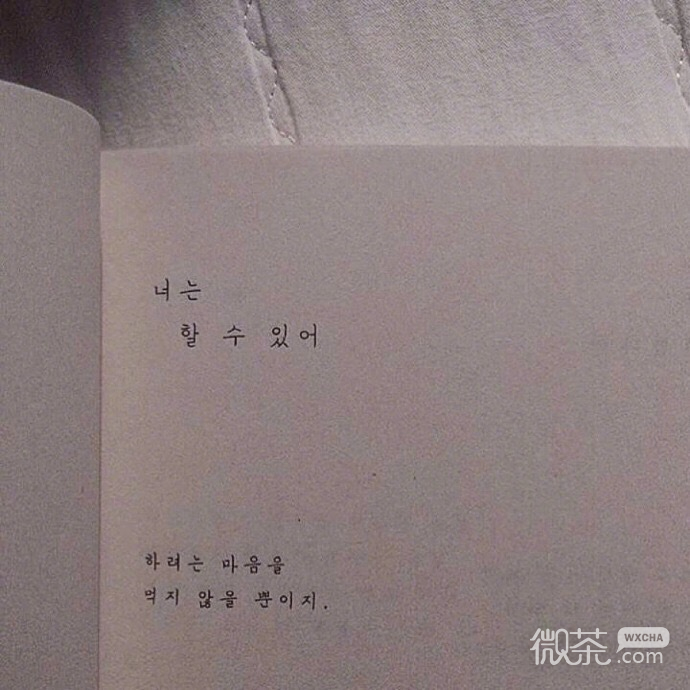 너는
할 수 있어
하려는 마음을
먹지 않을 뿐이지.
微茶 WXCHA
.com